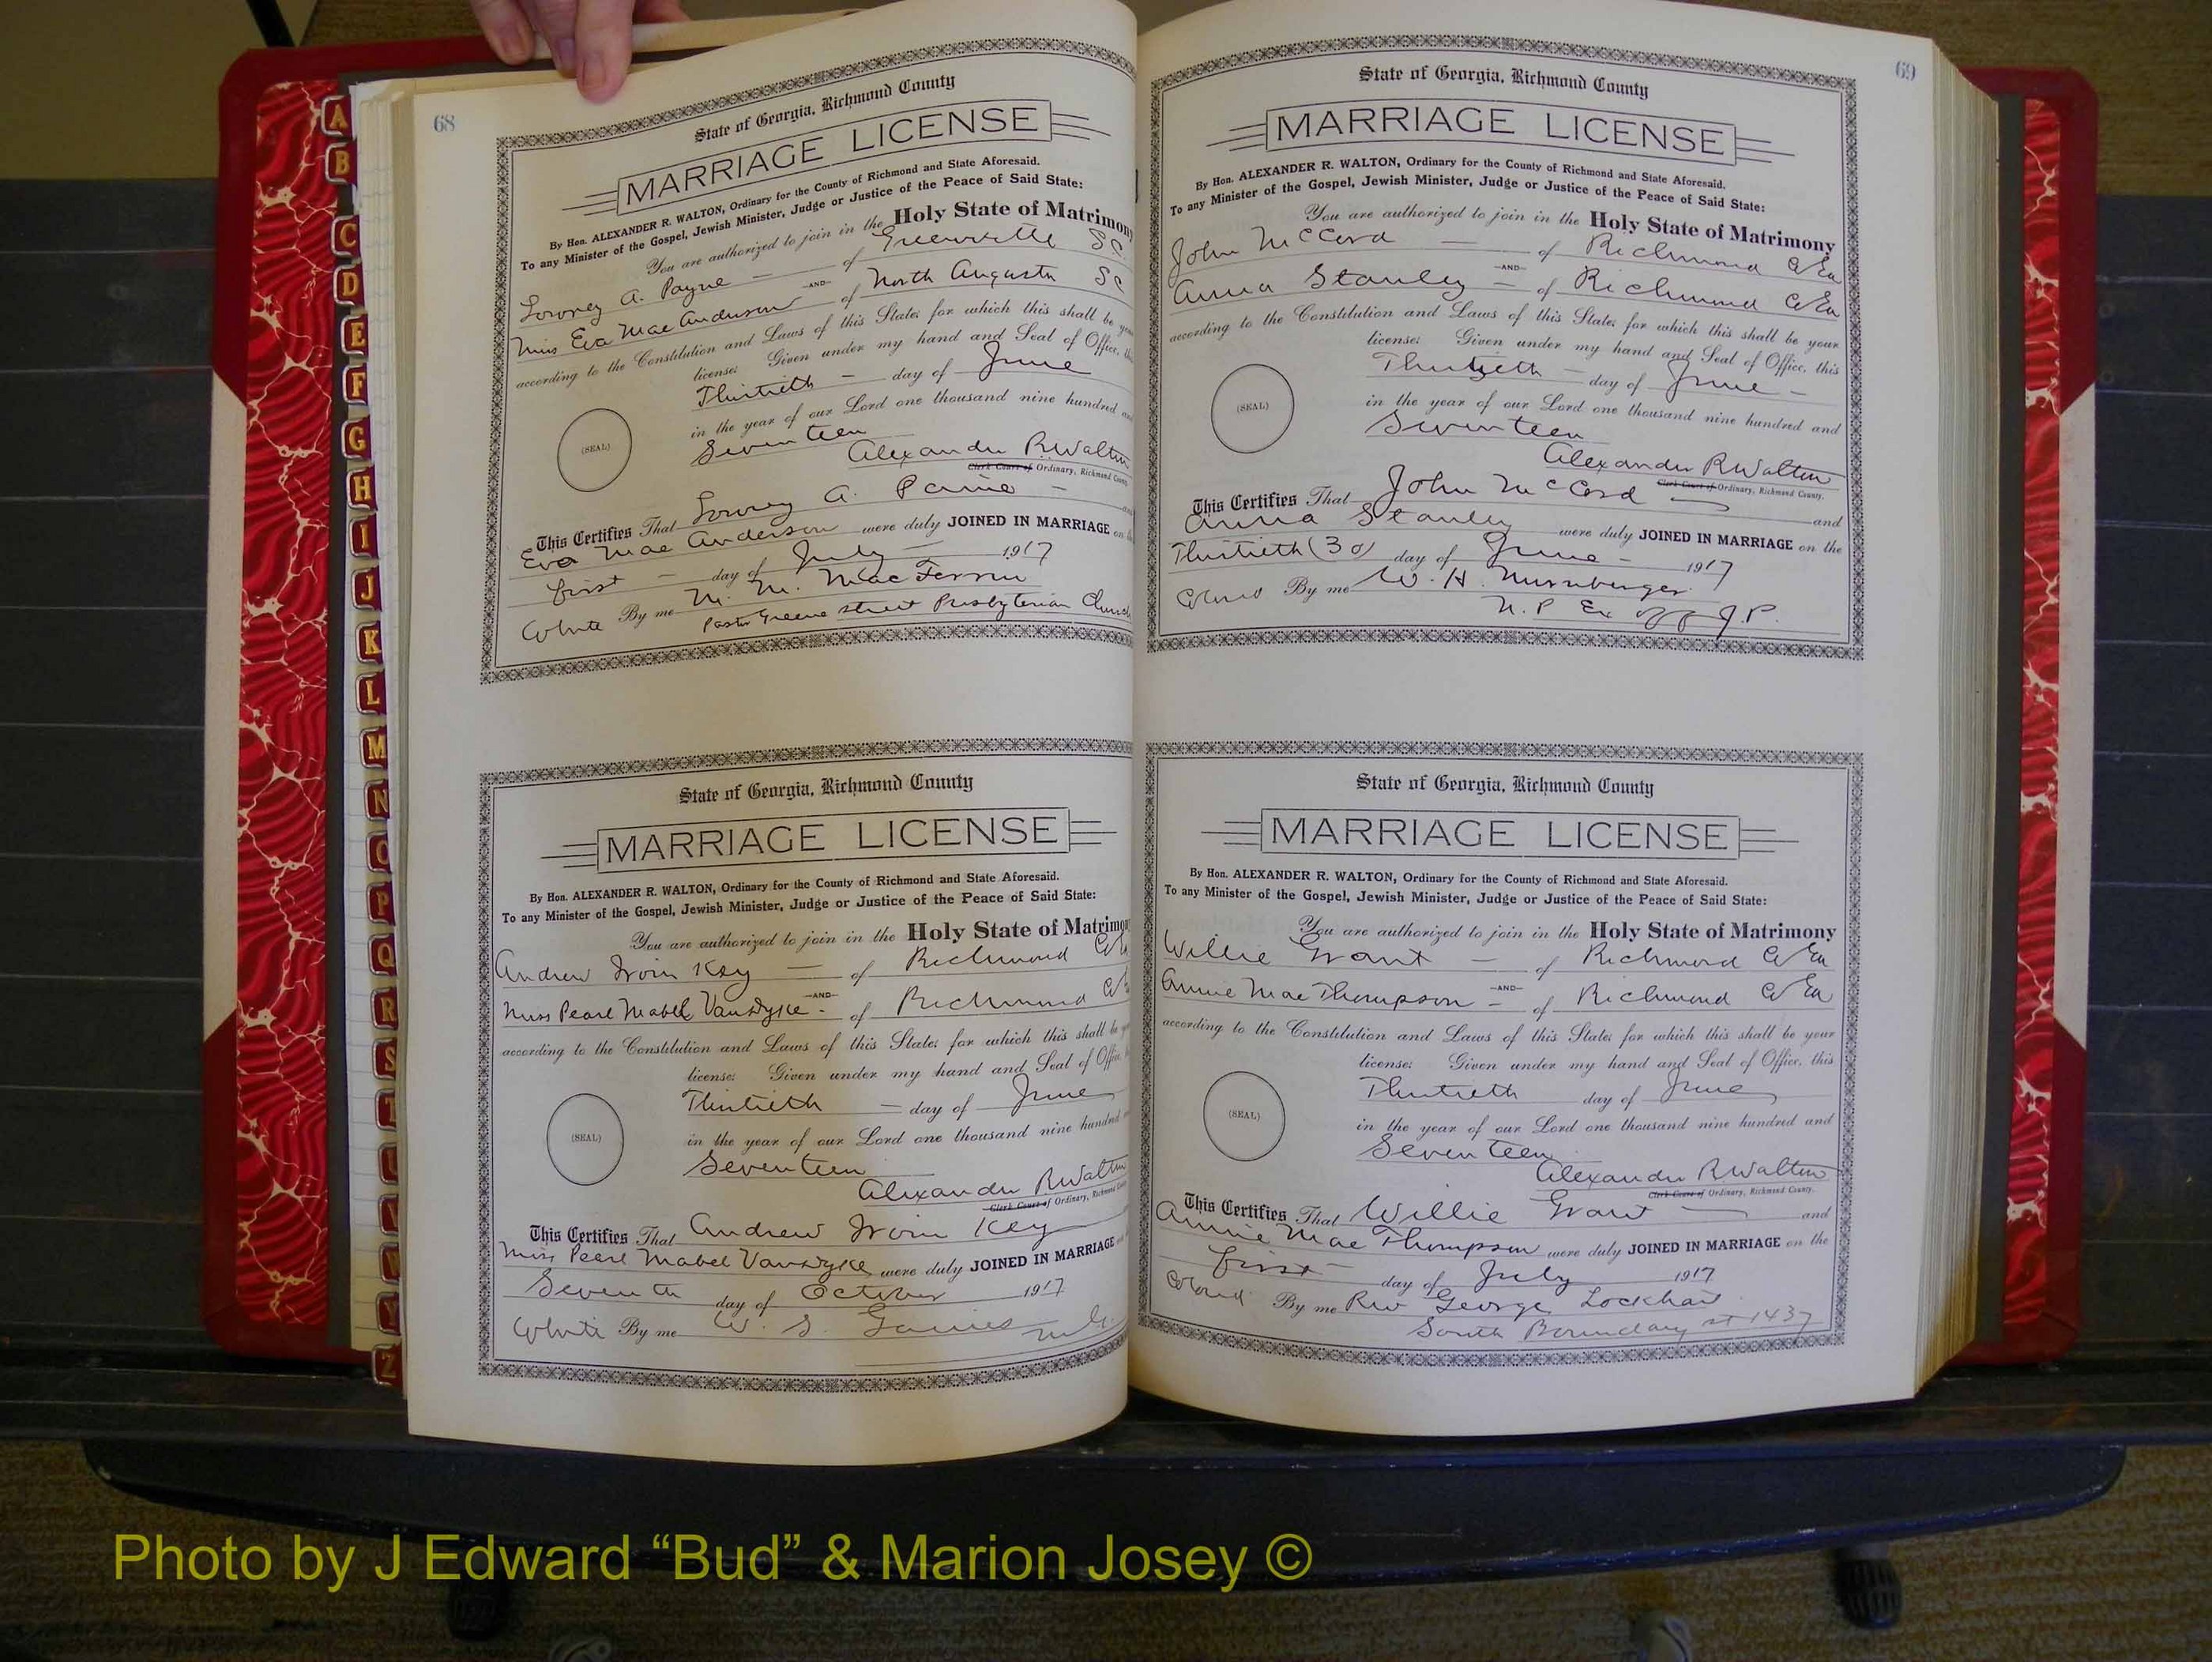 A
B
C
D
E
F
G
H
I
J
K
L
M
N
O
P
Q
R
S
T
U
V
W
Y
Z
68
State of Georgia, Richmond County
MARRIAGE LICENSE
By Hon. ALEXANDER R. WALTON, Ordinary for the County of Richmond and State Aforesaid.
To any Minister of the Gospel, Jewish Minister, Judge or Justice of the Peace of Said State:
You are authorized to join in the Holy State of Matrimony
Lowrey A. Payne — of Greenville SC.
—AND—
Miss Eva Mae Anderson of North Augusta SC
according to the Constitution and Laws of this State; for which this shall be
license: Given under my hand and Seal of Office,
Thirtieth — day of June
in the year of our Lord one thousand nine hundred
(SEAL)
Seventeen
Alexander R Walton
Clerk Court of Ordinary, Richmond County
This Certifies That Lowrey A. Paine —
Eva Mae Anderson were duly JOINED IN MARRIAGE on
first — day of July — 1917
White By me M. M. MacFerrin
Pastor Greene street Presbyterian Church
State of Georgia, Richmond County
MARRIAGE LICENSE
By Hon. ALEXANDER R. WALTON, Ordinary for the County of Richmond and State Aforesaid.
To any Minister of the Gospel, Jewish Minister, Judge or Justice of the Peace of Said State:
You are authorized to join in the Holy State of Matrimony
Andrew Irvin Key — of Richmond Co
—AND—
Miss Pearl Mabel VanDyke - of Richmond Co
according to the Constitution and Laws of this State; for which this shall be
license: Given under my hand and Seal of Office,
Thirtieth — day of June
in the year of our Lord one thousand nine hundred
(SEAL)
Seventeen
Alexander R Walton
Clerk Court of Ordinary, Richmond County
This Certifies That Andrew Irvin Key
Miss Pearl Mabel VanDyke were duly JOINED IN MARRIAGE
Seventh day of October 1917
White By me W. S. Gaines M.G.
69
State of Georgia, Richmond County
MARRIAGE LICENSE
By Hon. ALEXANDER R. WALTON, Ordinary for the County of Richmond and State Aforesaid.
To any Minister of the Gospel, Jewish Minister, Judge or Justice of the Peace of Said State:
You are authorized to join in the Holy State of Matrimony
John McCord — of Richmond Co Ga
—AND—
Anna Stanley — of Richmond Co Ga
according to the Constitution and Laws of this State; for which this shall be your
license: Given under my hand and Seal of Office, this
Thirtieth — day of June —
in the year of our Lord one thousand nine hundred and
(SEAL)
Seventeen
Alexander R Walton
Clerk Court of Ordinary, Richmond County.
This Certifies That John McCord — and
Anna Stanley were duly JOINED IN MARRIAGE on the
Thirtieth (30) day of June — 1917
Colored By me W. H. Nurnberger
N. P. Ex off J.P.
State of Georgia, Richmond County
MARRIAGE LICENSE
By Hon. ALEXANDER R. WALTON, Ordinary for the County of Richmond and State Aforesaid.
To any Minister of the Gospel, Jewish Minister, Judge or Justice of the Peace of Said State:
You are authorized to join in the Holy State of Matrimony
Willie Grant — of Richmond Co Ga
—AND—
Annie Mae Thompson — of Richmond Co Ga
according to the Constitution and Laws of this State; for which this shall be your
license: Given under my hand and Seal of Office, this
Thirtieth day of June
in the year of our Lord one thousand nine hundred and
(SEAL)
Seventeen
Alexander R Walton
Clerk Court of Ordinary, Richmond County.
This Certifies That Willie Grant — and
Annie Mae Thompson were duly JOINED IN MARRIAGE on the
first — day of July 1917
Colored By me Rev George Lockhart
South Boundary st 1437
Photo by J Edward “Bud” & Marion Josey ©